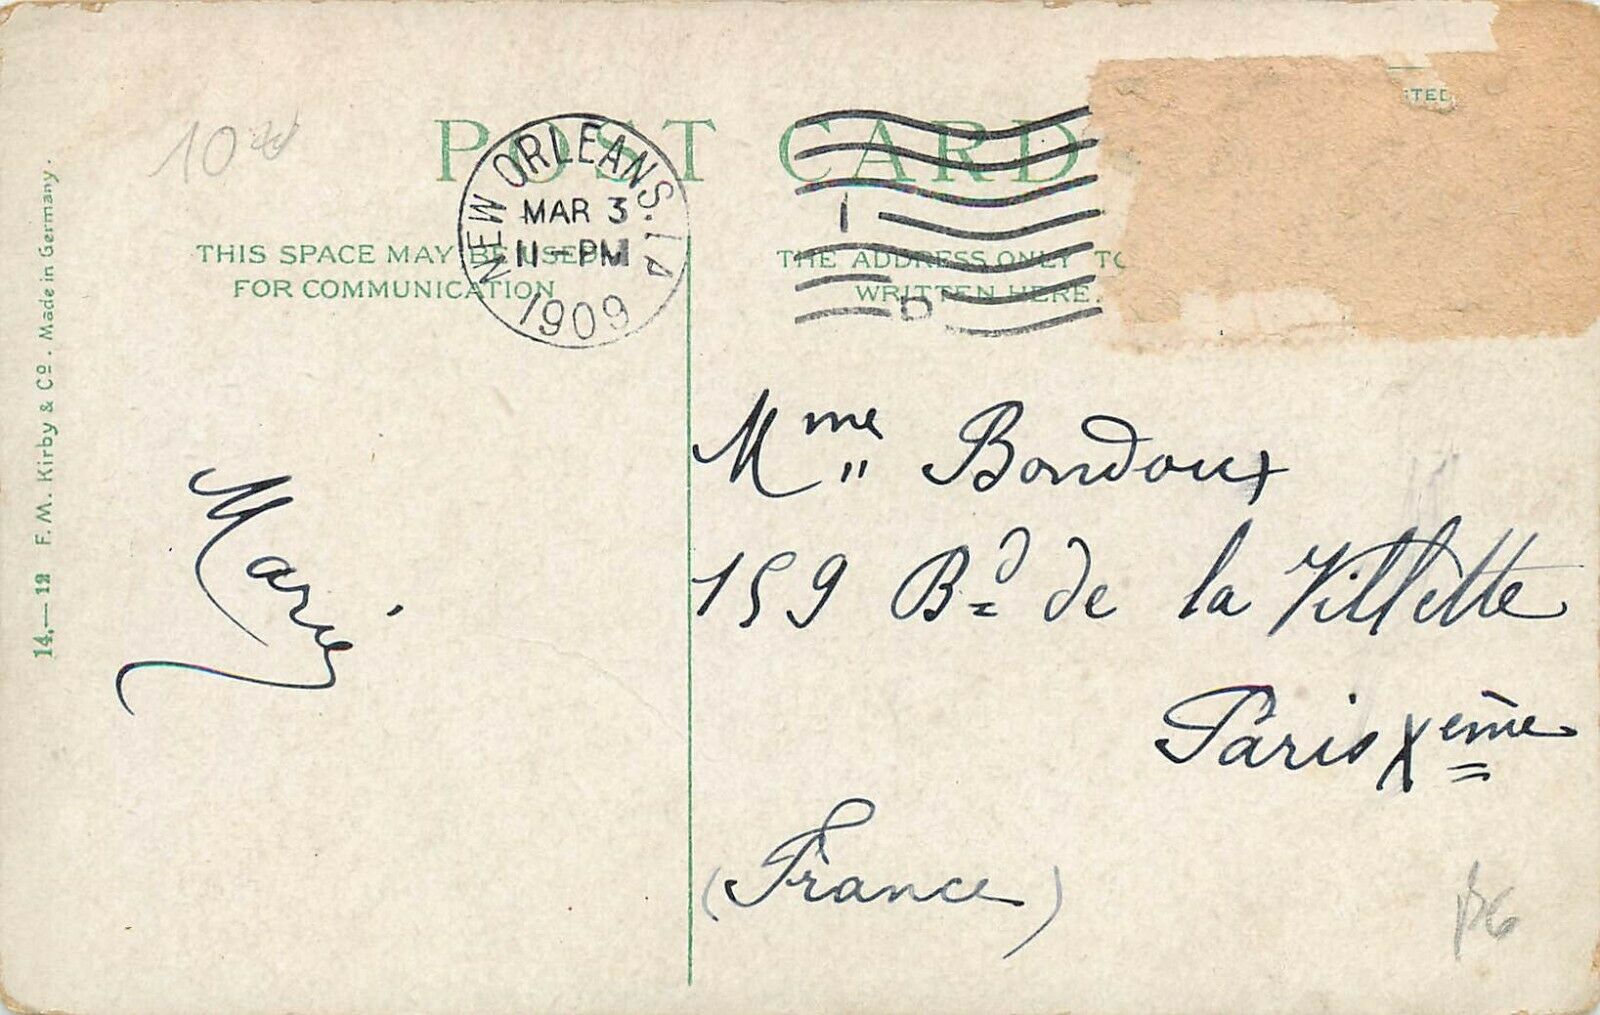 POST CARD
10
NEW ORLEANS. LA
MAR 3
11-PM
1909
1
D
THIS SPACE MAY BE USED
FOR COMMUNICATION
THE ADDRESS ONLY TO
WRITTEN HERE.
14.—12 F. M. Kirby & Co. Made in Germany.
Marie
Mme Bondoux
159 Bd de la Villette
Paris Xème
(France)